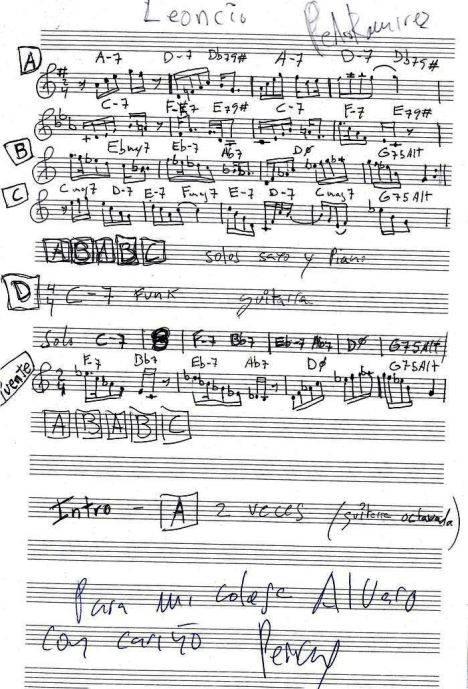 Leoncio
Pedro Ramirez
A
A-7 D-7 Db79# A-7 D-7 Db79#
C-7 F-7 E79# C-7 F-7 E79#
B
Ebmaj7 Eb-7 Ab7 DØ G75Alt
C
Cmaj7 D-7 E-7 Fmaj7 E-7 D-7 Cmaj7 G75Alt
A B A B C solos saxo y Piano
D 4/4 C-7 Funk guitarra
Solo C-7 F-7 Bb7 Eb-7 Ab7 DØ G75Alt
F-7 Bb7 Eb-7 Ab7 DØ G75Alt
A B A B C
Intro - A 2 veces (guitarra octavada)
Para mi colega Alvaro
con cariño